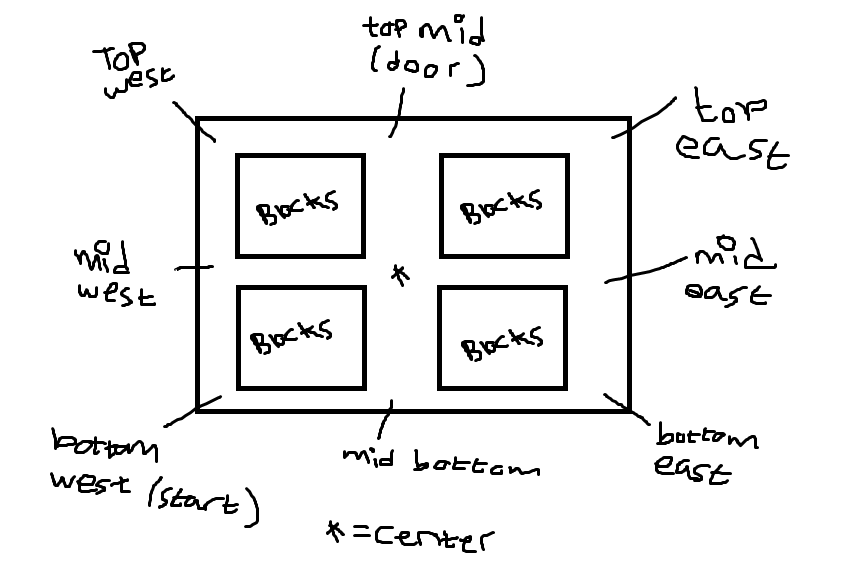 top mid
(door)
TOP
west
top
east
BOCKS
BOCKS
mid
west
*
mid
east
BOCKS
BOCKS
bottom
west (start)
mid bottom
bottom
east
*=center